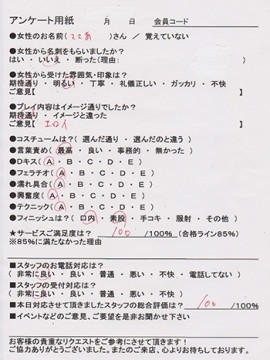 アンケート用紙 月 日 会員コード
●女性のお名前( )さん / 覚えていない
●女性から名刺をもらいましたか?
はい・いいえ・断った(理由: )
●女性から受けた雰囲気・印象は?
期待通り・明るい・丁寧・礼儀正しい・ガッカリ・不快
ご意見【 】
●プレイ内容はイメージ通りでしたか?
期待通り・イメージと違った
ご意見【 エロイ 】
●コスチュームは?( 選んだ通り ・ 選んだのと違う )
●言葉責め( 最高 ・ 良い ・ 事務的 ・ 無かった )
●Dキス( A ・ B ・ C ・ D ・ E )
●フェラチオ( A ・ B ・ C ・ D ・ E )
●濡れ具合( A ・ B ・ C ・ D ・ E )
●興奮度( A ・ B ・ C ・ D ・ E )
●テクニック( A ・ B ・ C ・ D ・ E )
●フィニッシュは?( 口内 ・ 素股 ・ 手コキ ・ 服射 ・ その他 )
★サービスご満足度は? 100 /100% (合格ライン85%)
※85%に満たなかった理由
■スタッフのお電話対応は?
( 非常に良い ・ 良い ・ 普通 ・ 悪い ・ 不快 ・ 電話してない )
■スタッフの受付対応は?
( 非常に良い ・ 良い ・ 普通 ・ 悪い ・ 不快 )
■本日対応させて頂きましたスタッフの総合評価は? 100 /100%
■イベントなどのご意見、ご要望を是非お聞かせ下さい
お客様の貴重なリクエストをご参考にさせて頂きます!
ご協力ありがとうございました。またのご来店、心よりお待ちしております。